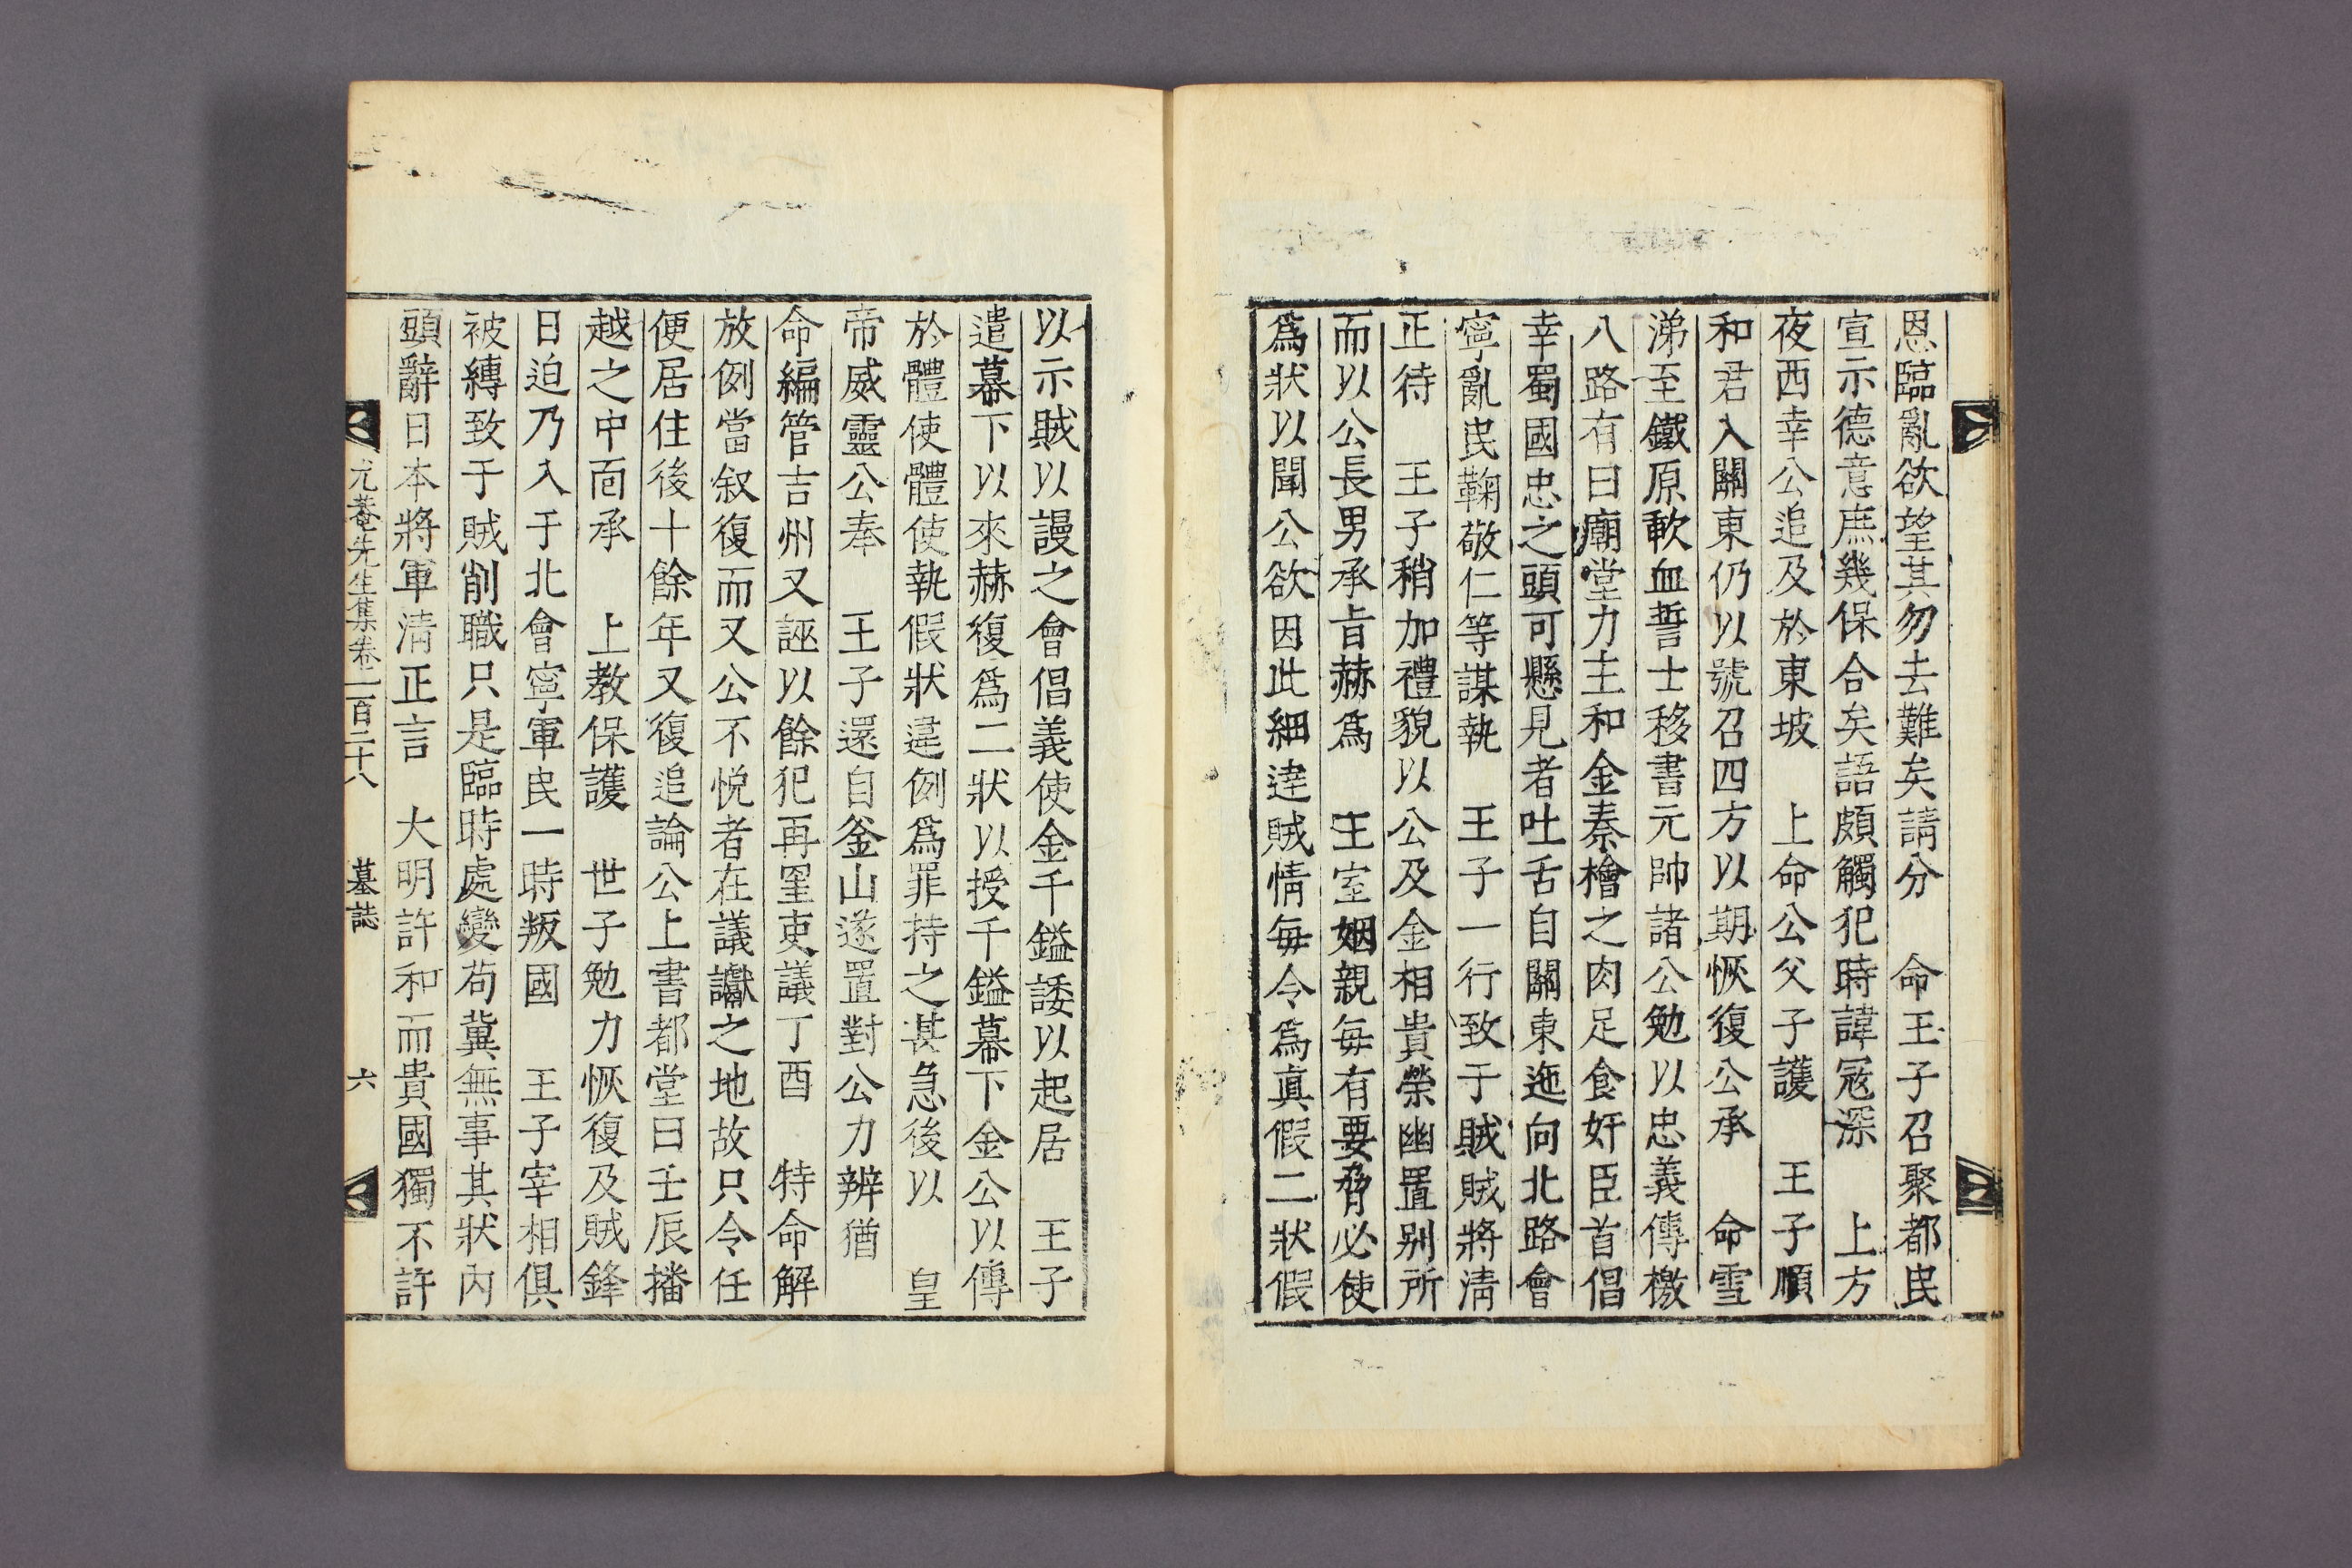 恩臨亂欲望其勿去難矣請分　命王子召聚都民
宣示德意庶幾保合矣語頗觸犯時諱冦深　上方
夜西幸公追及於東坡　上命公父子護　王子順
和君入關東仍以號召四方以期恢復公承　命雪
涕至鐵原歃血誓士移書元帥諸公勉以忠義傳檄
八路有曰廟堂力主和金秦檜之肉足食奸臣首倡
幸蜀國忠之頭可懸見者吐舌自關東迤向北路會
寧亂民鞠敬仁等謀執　王子一行致于賊賊將淸
正待　王子稍加禮貌以公及金相貴榮幽置别所
而以公長男承㫖赫爲　王室姻親每有要脅必使
爲狀以聞公欲因此細逹賊情每令爲眞假二狀假
以示賊以謾之會倡義使金千鎰諉以起居　王子
遣幕下以來赫復爲二狀以授千鎰幕下金公以傳
於體使體使執假狀違例爲罪持之甚急後以　皇
帝威靈公奉　王子還自釜山遂置對公力辨猶
命編管吉州又誣以餘犯再罣吏議丁酉　特命解
放例當叙復而又公不悅者在議讞之地故只令任
便居住後十餘年又復追論公上書都堂曰壬辰播
越之中面承　上敎保護　世子勉力恢復及賊鋒
日迫乃入于北會寧軍民一時叛國　王子宰相俱
被縛致于賊削職只是臨時處變苟冀無事其狀內
頭辭日本將軍淸正言　大明許和而貴國獨不許
尤菴先生集卷一百二十八　墓誌　六